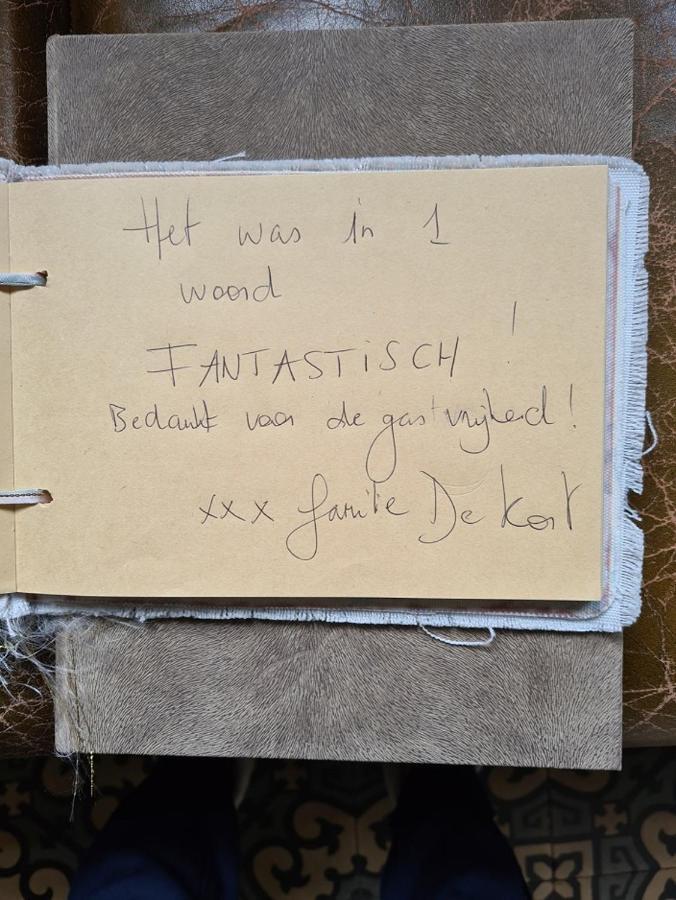 Het was in 1
woord
FANTASTiSCH !
Bedankt voor de gastvrijheid!
xxx familie De Kort